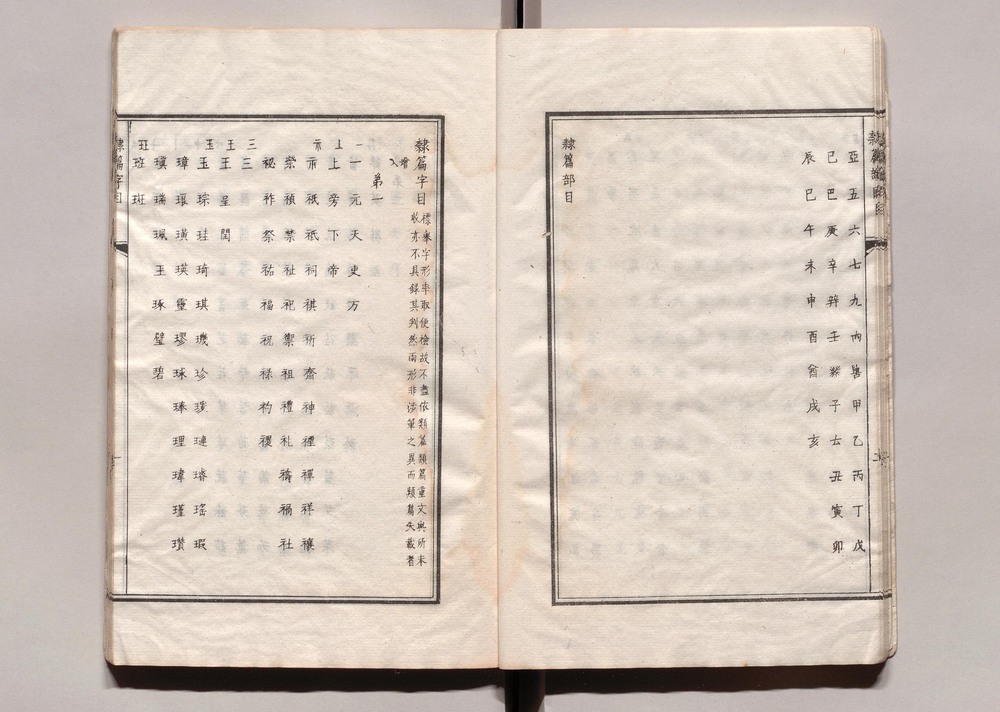 亞五六七九禸嘼甲乙丙丁戊
己巴庚辛辡壬癸子𠫓丑寅卯
辰巳午未申酉酋戌亥
隸篇部目
隸篇字目
標象字形率取便檢故不盡依類篇類篇重文與所未
收亦不具錄其判然兩形非涉筆之異而類篇失載者
第一
一 一元天吏万
丄 上旁下帝
示 示祇祗祠祺祈齋神禋禪祥禳
祡禎禁社祀禦祖禮礼禱禍社
祕祚祭祐福祝祿礿禝
三 三
王 王皇閏
玉 玉琮珪琦琪璣珍璞璉璿瑤瑕
璋環璜瑛靈璆球琫理瑋瑾瓚
瓊瑞珮玉琢璧碧
玨 班斑
隸篇字目